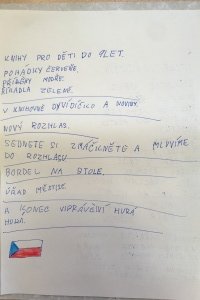 KNIHY PRO DĚTI DO 9LET.
POHÁDKY ČERVEŇE.
PŘÍBĚHY MODŘE.
ŘÍKADLA ZELENĚ.
V KNIHOVNĚ DYVIDÍČKO A NOVINY.
NOVÝ ROZHLAS.
SEDNĚTE SI ZMÁČKNĚTE A MLUVÍME
DO ROZHLASU
BORDEL NA STOLE.
ÚŘAD MĚSTYSE.
A KONEC VIPRÁVĚNÍ HURÁ
HURÁ.